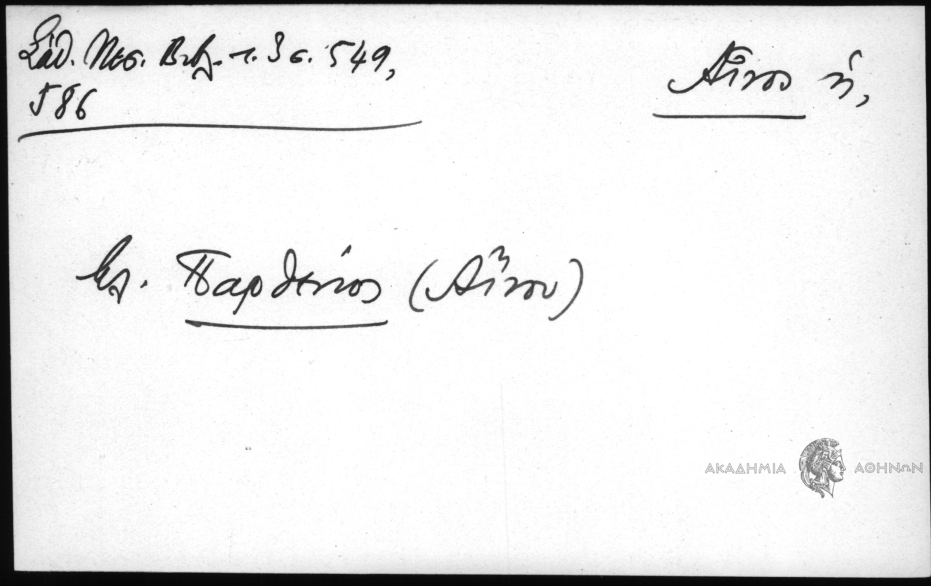 Σάθ. Μεσ. Βιβλ. τ. 3 σ. 549,
586
Αἶνος ἡ,
Παρθένιος (Αἴνου)
ΑΚΑΔΗΜΙΑ ΑΘΗΝΩΝ